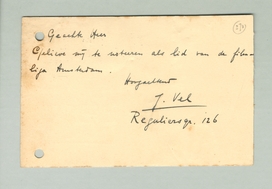 Geacht Heer
Gelieve mij te noteren als lid van de film-
liga Amsterdam.
Hoogachtend
J. Val
Reguliersgr. 126